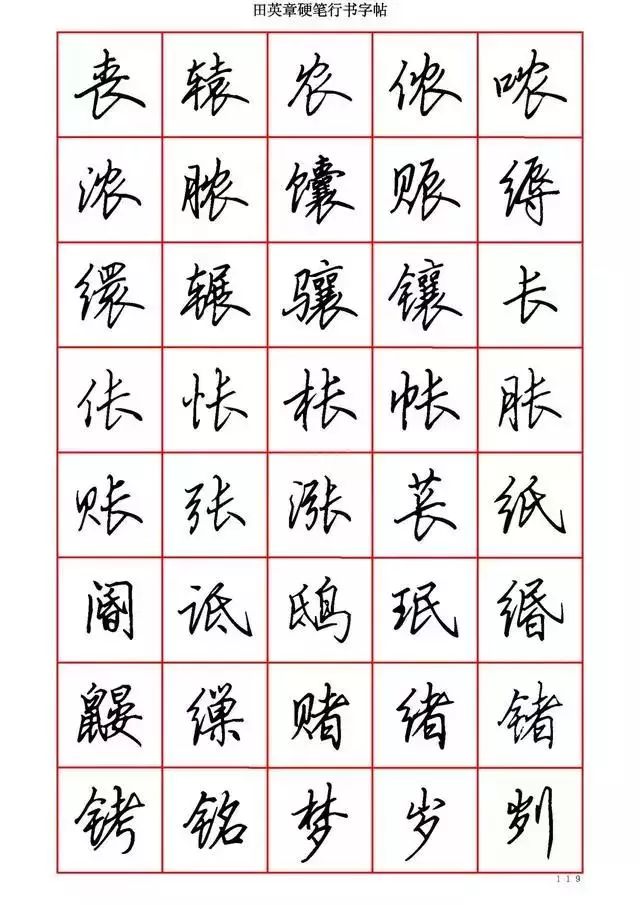 田英章硬笔行书字帖
丧 辕 农 侬 哝
浓 脓 馕 赈 缛
缳 辗 骧 镶 长
伥 怅 枨 帐 胀
账 张 涨 苌 纸
阍 诋 鸱 珉 缗
鼹 缫 赌 绪 锗
铐 铭 梦 岁 刿
119